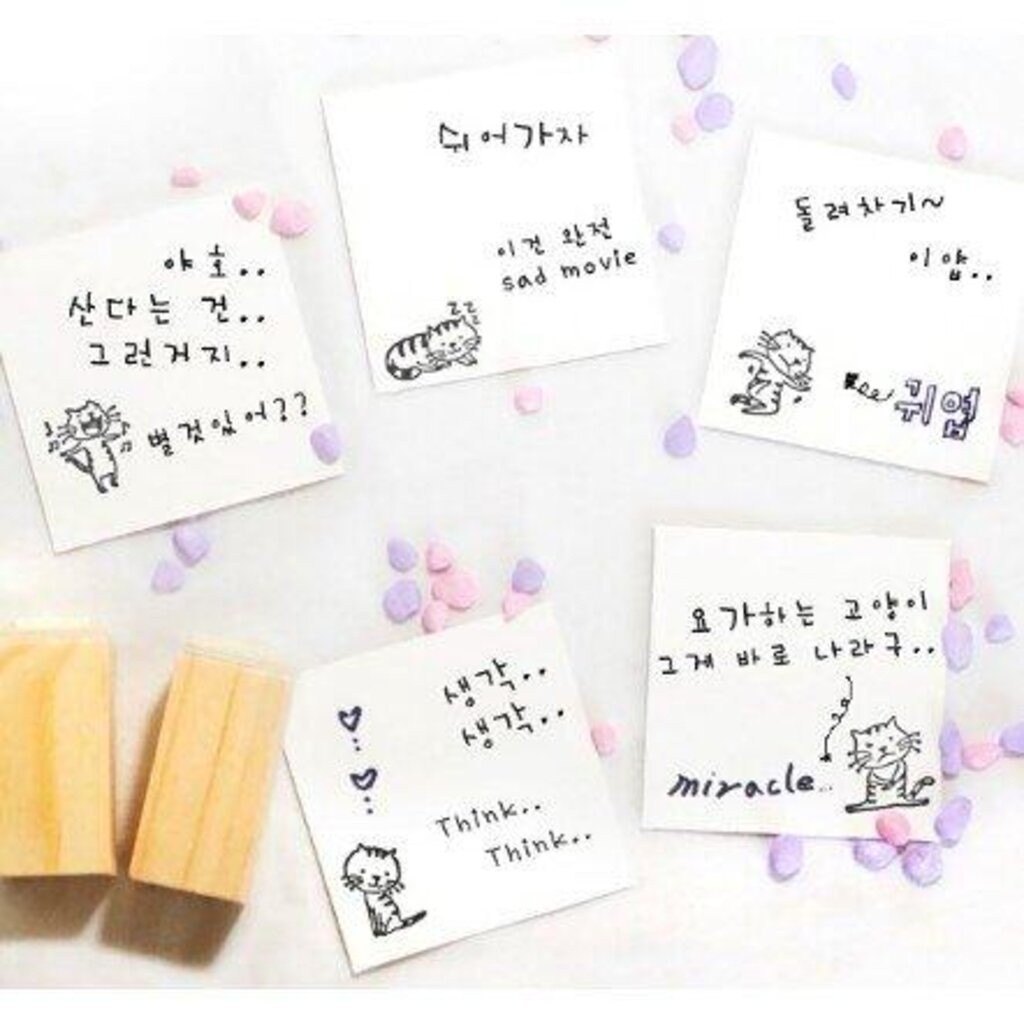 야호..
산다는 건..
그런거지..
별것있어??
쉬어가자
이건 완전
sad movie
zzz
돌려차기~
이얍..
귀염
생각..
생각..
Think..
Think..
요가하는 고양이
그게 바로 나라구..
miracle..